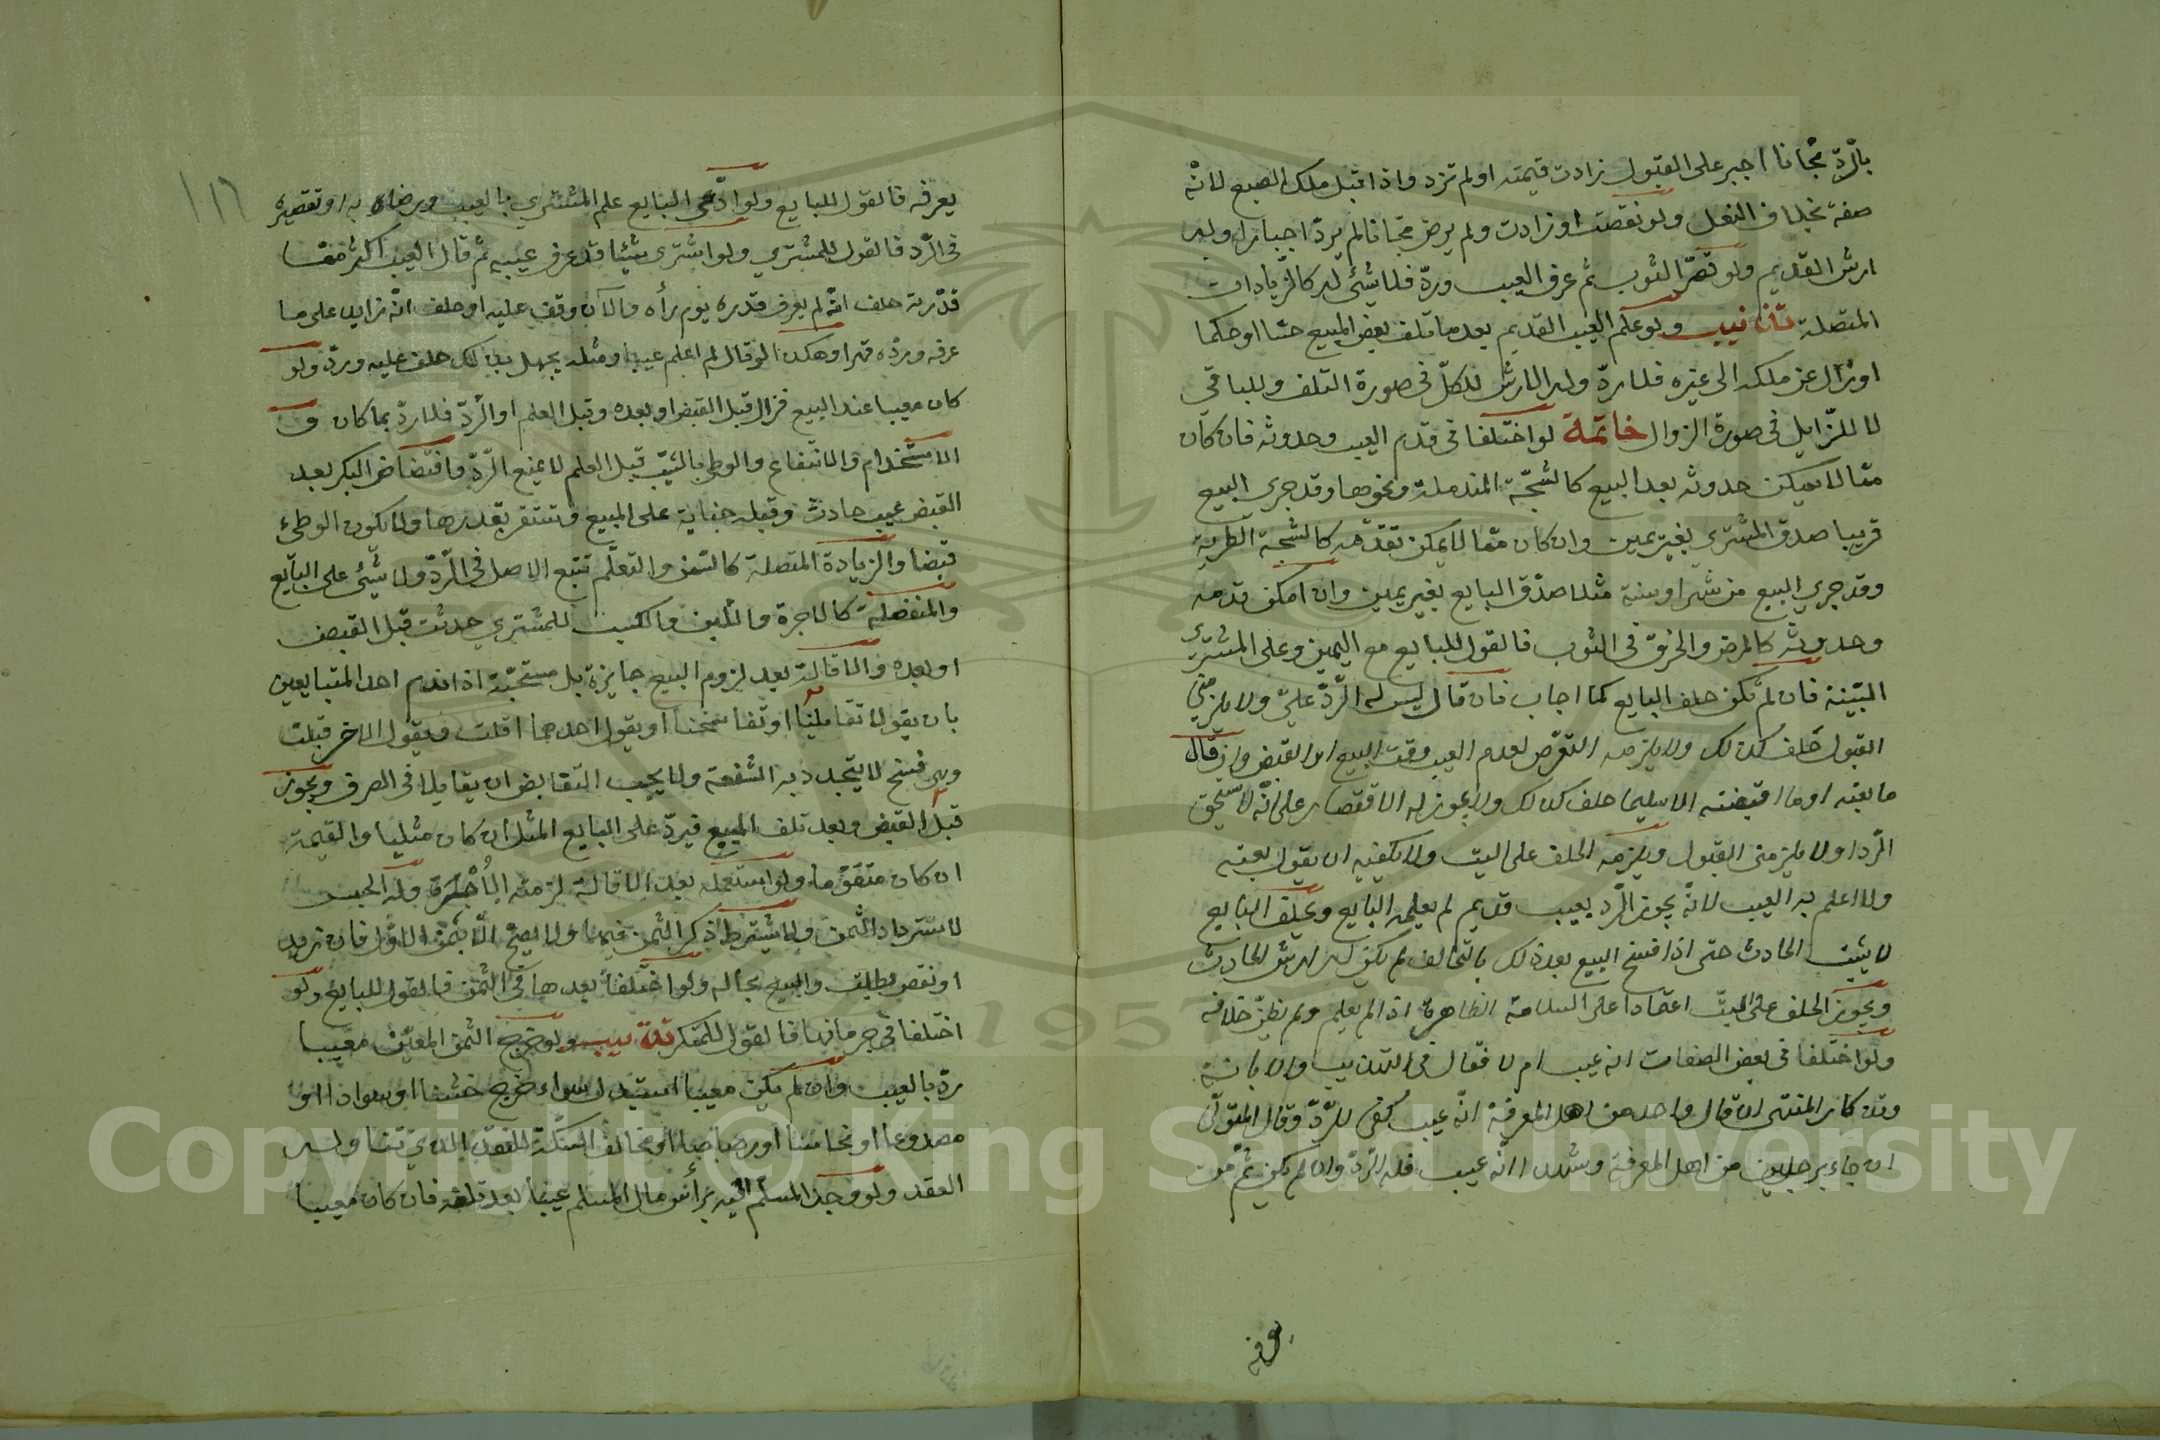 بالرّدّ مجّانا اجبر على القبول زادت قيمته او لم تزد واذا قبل ملك الصبع لانّه
صفة بخلاف النعل ولو نقصت او زادت ولم يرض مجّانا لم يردّ اجبارا وله
ارش القديم ولو قصّر الثوب ثم عرف العيب وردّ فلا شئ له كالزّيادات
المتصلة تذنيب ولو علم العيب القديم بعد ما تلف بعض المبيع حسّا او حكما
او زال عن ملكه الى غيره فلا ردّ وله الارش للكلّ فى صورة التلف وللباقى
لا للزّايل فى صورة الزوال خاتمة لو اختلفا فى قدم العيب وحدوثه فان كان
ممّا لا يمكن حدوثه بعد البيع كالشجّة المندملة ونحوها وقد جرى البيع
قريبا صدق المشتري بغير يمين وان كان ممّا لا يمكن تقدّمه كالشجّة الطرية
وقد جرى البيع من شهر او سنة مثلا صدّق البايع بغير يمين وان امكن قدمه
وحدوثه كالمرض والخرق فى الثوب فالقول للبايع مع اليمين وعلى المشتري
البيّنة فان لم تكن حلف البايع كما اجاب فان قال ليس له الرّدّ علىّ ولا يلزمنى
القبول حلف كذلك ولا يلزمه التعرّض لعدم العيب وقت البيع او القبض وان قال
ما بعته او ما اقبضته الا سليما حلف كذلك ولا يجوز له الاقتصار على انّه لا يستحق
الرّد او لا يلزمنى القبول ويلزمه الحلف على البت ولا يكفيه ان يقول بعته
ولا اعلم به العيب لانّه يجوز الرّد بعيب قديم لم يعلمه البايع ويحلف البايع
لا يثبت الحادث حتى اذا فسخ البيع بعد ذلك بالتحالف لم يكن له ارش الحادث
ويجوز الحلف على البتّ اعتمادا على السلامة الظاهرة اذا لم يعلم ولم يظنّ خلافه
ولو اختلفا فى بعض الصفات انه عيب ام لا فقال فى التهذيب والابانة
وتذكار المنتهى ان قال واحد من اهل المعرفة انّه عيب كفى للرّدّ وقال المتولّى
ان جاء برجلين من اهل المعرفة وشهدا انّه عيب فله الرّدّ وان لم يكن ثمّ من
يعرفه
يعرفه فالقول للبايع ولو ادّعى البايع علم المشتري بالعيب ورضاه به او تقصيره
فى الرّد فالقول للمشتري ولو اشترى شيئا قد عرف عيبه ثم قال العيب اكثر ممّا
قدّرته حلف انّه لم يعرف قدره يوم رأه والآن وقف عليه او حلف انّه زايد على ما
عرفه وردّه قهرا وهكذا لو قال لم اعلم عيبا ومثله يجهل بذلك حلف عليه وردّ ولو
كان معيبا عند البيع فزال قبل القبض او بعده وقبل العلم او الرّدّ فلا ردّ بما كان و
الاستخدام والانتفاع والوطى بالثيّب قبل العلم لا يمنع الرّدّ وافتضاض البكر بعد
القبض عيب حادث وقبله جناية على المبيع وتستقر بقدرها ولا يكون الوطئ
قبضا والزيادة المتصلة كالسّمن والتعلّم تتبع الاصل فى الرّدّ ولا شئ على البايع
والمنفصلة كالاجرة واللّبن والكسب للمشتري حدثت قبل القبض
او بعده والاقالة بعد لزوم البيع جايزة بل مستحبّة اذا ندم احد المتبايعين
بان يقولا تقايلنا او تفاسخنا او يقول احدهما اقلت ويقول الاخر قبلت
وهى فسخ لا يتجدد به الشفعة ولا يجب التقابض ان يقايلا فى الصرف ويجوز
قبل القبض وبعد تلف المبيع فيردّ على البايع المثل ان كان مثليا والقيمة
ان كان متقوّما ولو استعمله بعد الاقالة لزمته الاُجْرَة وله الحبس
لاسترداد الثّمن ولا يشترط ذكر الثّمن فيها ولا يصحّ الّا بثمن الاوّل فان زيد
او نقص بطلت والبيع بحاله ولو اختلفا بعدها فى الثّمن فالقول للبايع ولو
اختلفا فى جريانها فالقول للمنكر تذنيب ولو خرج الثّمن المعيّن معيبا
ردّ بالعيب وان لم يكن معينا استبدل سواء خرج خشنا او سوادا او
مصدوعا او نحاسا او رصاصا او مخالف السكّة للنقد الذي تناوله
العقد ولو وجد المسلّم اليه برأس مال المسلم عيبا بعد تلفه فان كان معيبا